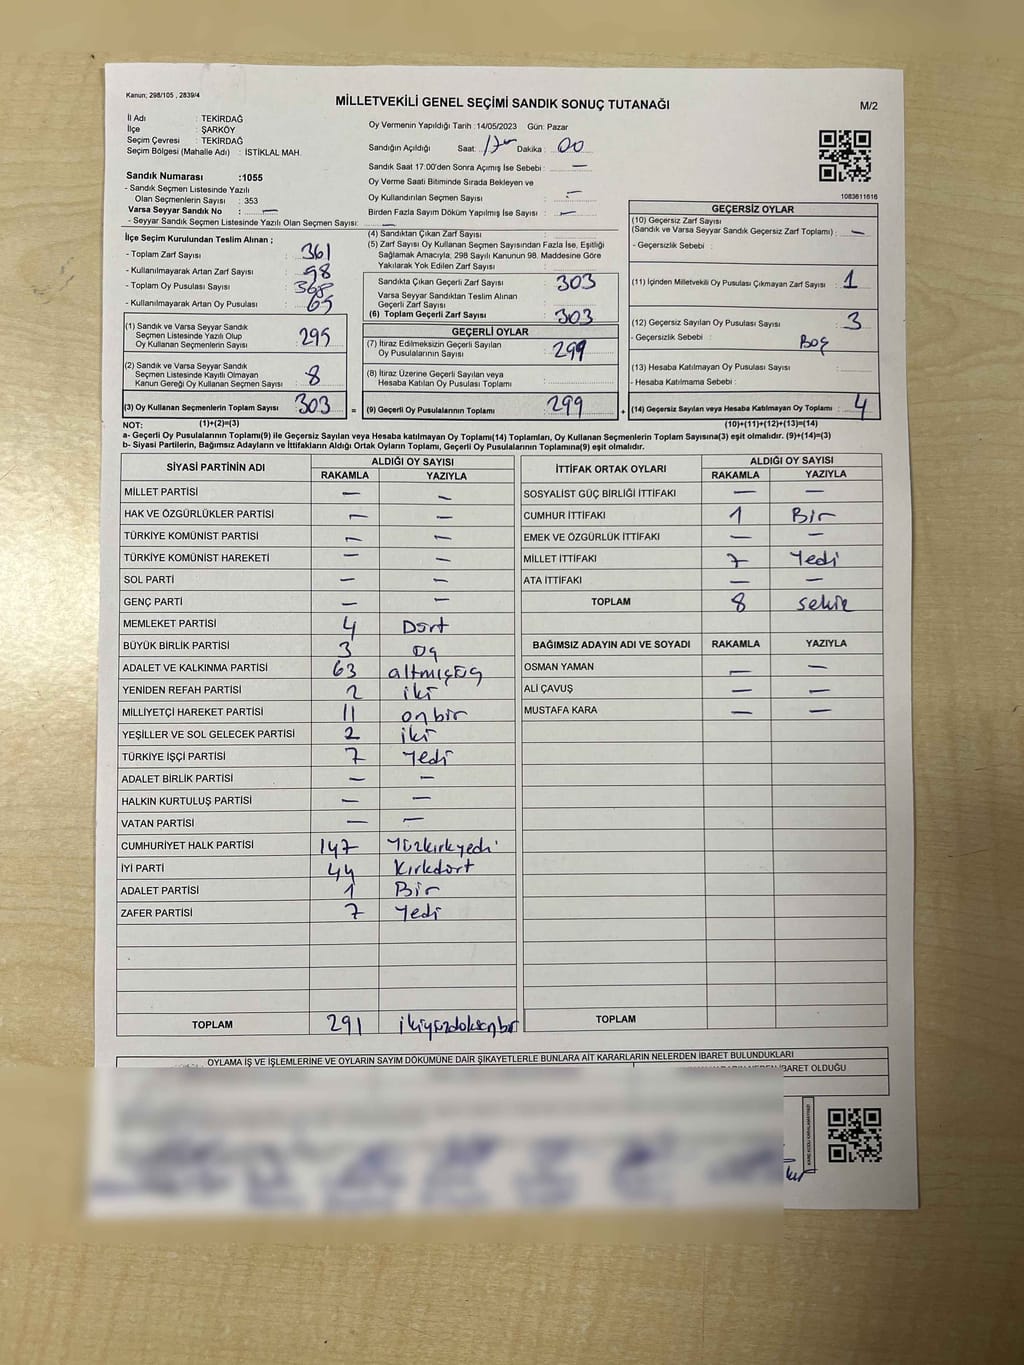 Kanun; 298/105 , 2839/4
MİLLETVEKİLİ GENEL SEÇİMİ SANDIK SONUÇ TUTANAĞI
M/2
İl Adı : TEKİRDAĞ
İlçe : ŞARKÖY
Seçim Çevresi : TEKİRDAĞ
Seçim Bölgesi (Mahalle Adı) : İSTİKLAL MAH.
Sandık Numarası :1055
- Sandık Seçmen Listesinde Yazılı
Olan Seçmenlerin Sayısı : 353
Varsa Seyyar Sandık No : —
- Seyyar Sandık Seçmen Listesinde Yazılı Olan Seçmen Sayısı: —
Oy Vermenin Yapıldığı Tarih :14/05/2023 Gün: Pazar
Sandığın Açıldığı Saat: 17 Dakika : 00
Sandık Saat 17:00'den Sonra Açımış İse Sebebi : —
Oy Verme Saati Bitiminde Sırada Bekleyen ve
Oy Kullandırılan Seçmen Sayısı : —
Birden Fazla Sayım Döküm Yapılmış İse Sayısı : —
1083611616
İlçe Seçim Kurulundan Teslim Alınan ;
- Toplam Zarf Sayısı : 361
- Kullanılmayarak Artan Zarf Sayısı : 98
- Toplam Oy Pusulası Sayısı : 368
- Kullanılmayarak Artan Oy Pusulası : 65
(1) Sandık ve Varsa Seyyar Sandık
Seçmen Listesinde Yazılı Olup
Oy Kullanan Seçmenlerin Sayısı : 295
(2) Sandık ve Varsa Seyyar Sandık
Seçmen Listesinde Kayıtlı Olmayan
Kanun Gereği Oy Kullanan Seçmen Sayısı : 8
(3) Oy Kullanan Seçmenlerin Toplam Sayısı : 303 =
(4) Sandıktan Çıkan Zarf Sayısı :
(5) Zarf Sayısı Oy Kullanan Seçmen Sayısından Fazla İse, Eşitliği
Sağlamak Amacıyla, 298 Sayılı Kanunun 98. Maddesine Göre
Yakılarak Yok Edilen Zarf Sayısı :
Sandıkta Çıkan Geçerli Zarf Sayısı : 303
Varsa Seyyar Sandıktan Teslim Alınan
Geçerli Zarf Sayısı :
(6) Toplam Geçerli Zarf Sayısı : 303
GEÇERLİ OYLAR
(7) İtiraz Edilmeksizin Geçerli Sayılan
Oy Pusulalarının Sayısı : 299
(8) İtiraz Üzerine Geçerli Sayılan veya
Hesaba Katılan Oy Pusulaları Toplamı :
(9) Geçerli Oy Pusulalarının Toplamı : 299 +
GEÇERSİZ OYLAR
(10) Geçersiz Zarf Sayısı
(Sandık ve Varsa Seyyar Sandık Geçersiz Zarf Toplamı) : —
- Geçersizlik Sebebi :
(11) İçinden Milletvekili Oy Pusulası Çıkmayan Zarf Sayısı : 1
(12) Geçersiz Sayılan Oy Pusulası Sayısı : 3
- Geçersizlik Sebebi : Boş
(13) Hesaba Katılmayan Oy Pusulası Sayısı :
- Hesaba Katılmama Sebebi :
(14) Geçersiz Sayılan veya Hesaba Katılmayan Oy Toplamı : 4
NOT: (1)+(2)=(3) (10)+(11)+(12)+(13)=(14)
a- Geçerli Oy Pusulalarının Toplamı(9) ile Geçersiz Sayılan veya Hesaba katılmayan Oy Toplamı(14) Toplamları, Oy Kullanan Seçmenlerin Toplam Sayısına(3) eşit olmalıdır. (9)+(14)=(3)
b- Siyasi Partilerin, Bağımsız Adayların ve İttifakların Aldığı Ortak Oyların Toplamı, Geçerli Oy Pusulalarının Toplamına(9) eşit olmalıdır.
SİYASİ PARTİNİN ADI ALDIĞI OY SAYISI
RAKAMLA YAZIYLA
MİLLET PARTİSİ — —
HAK VE ÖZGÜRLÜKLER PARTİSİ — —
TÜRKİYE KOMÜNİST PARTİSİ — —
TÜRKİYE KOMÜNİST HAREKETİ — —
SOL PARTİ — —
GENÇ PARTİ — —
MEMLEKET PARTİSİ 4 Dört
BÜYÜK BİRLİK PARTİSİ 3 Üç
ADALET VE KALKINMA PARTİSİ 63 altmışüç
YENİDEN REFAH PARTİSİ 2 iki
MİLLİYETÇİ HAREKET PARTİSİ 11 onbir
YEŞİLLER VE SOL GELECEK PARTİSİ 2 iki
TÜRKİYE İŞÇİ PARTİSİ 7 Yedi
ADALET BİRLİK PARTİSİ — —
HALKIN KURTULUŞ PARTİSİ — —
VATAN PARTİSİ — —
CUMHURİYET HALK PARTİSİ 147 Yüzkırkyedi
İYİ PARTİ 44 Kırkdört
ADALET PARTİSİ 1 Bir
ZAFER PARTİSİ 7 Yedi
TOPLAM 291 ikiyüzdoksanbir
İTTİFAK ORTAK OYLARI ALDIĞI OY SAYISI
RAKAMLA YAZIYLA
SOSYALİST GÜÇ BİRLİĞİ İTTİFAKI — —
CUMHUR İTTİFAKI 1 Bir
EMEK VE ÖZGÜRLÜK İTTİFAKI — —
MİLLET İTTİFAKI 7 Yedi
ATA İTTİFAKI — —
TOPLAM 8 sekiz
BAĞIMSIZ ADAYIN ADI VE SOYADI RAKAMLA YAZIYLA
OSMAN YAMAN — —
ALİ ÇAVUŞ — —
MUSTAFA KARA — —
TOPLAM
OYLAMA İŞ VE İŞLEMLERİNE VE OYLARIN SAYIM DÖKÜMÜNE DAİR ŞİKAYETLERLE BUNLARA AİT KARARLARIN NELERDEN İBARET BULUNDUKLARI
İBARET OLDUĞU